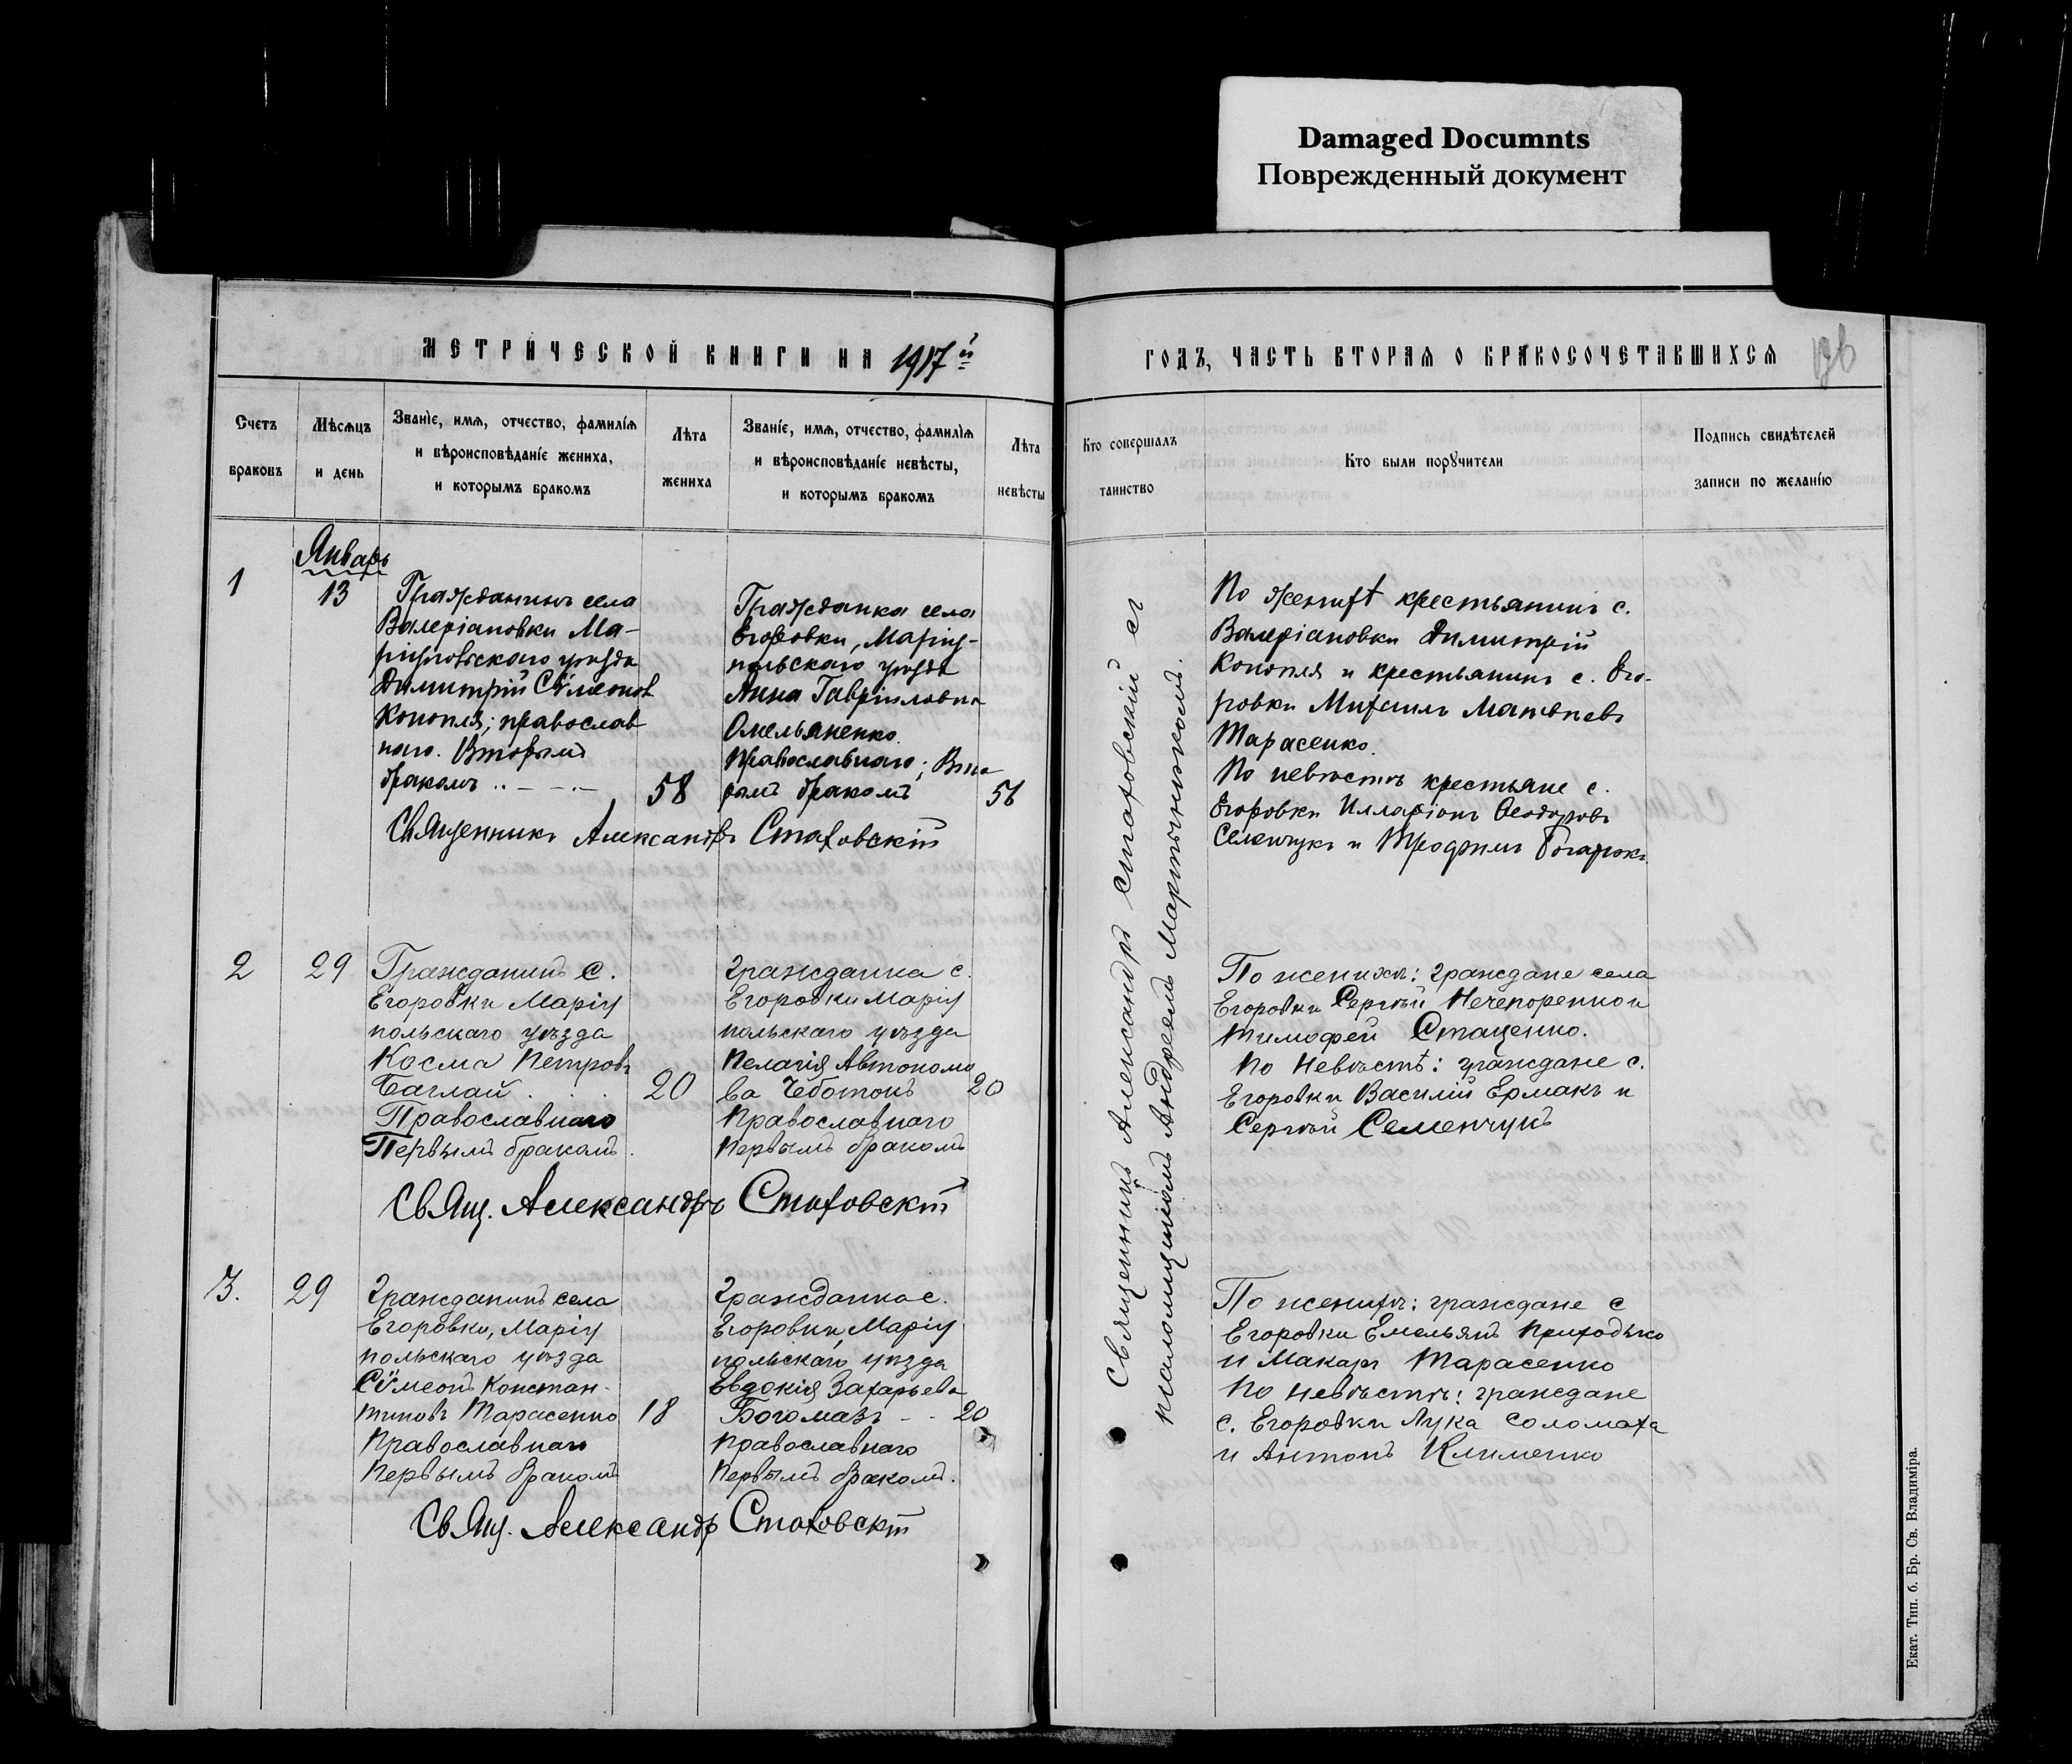 Damaged Documnts
Поврежденный документ
МЕТРИЧЕСКОЙ КНИГИ НА 1917й
ГОДЪ, ЧАСТЬ ВТОРАЯ О БРАКОСОЧЕТАВШИХСЯ
Счетъ
браковъ
Мѣсяцъ
и день
Званіе, имя, отчество, фамилія
и вѣроисповѣданіе жениха,
и которымъ бракомъ
Лѣта
жениха
Званіе, имя, отчество, фамилія
и вѣроисповѣданіе невѣсты,
и которымъ бракомъ
Лѣта
невѣсты
Кто совершалъ
таинство
Кто были поручители
Подпись свидѣтелей
записи по желанію
1
Январь
13
Гражданинъ села
Валеріановки Ма-
ріупольскаго уѣзда
Димитрій Сѵмеоновъ
Конопля; православ
наго. Вторымъ
бракомъ
58
Гражданка села
Егоровки, Маріу-
польскаго уѣзда
Анна Гавріиловна
Омельяненко
Православнаго; Вто
рымъ бракомъ
56
Священникъ Александръ Стаховскій
Священникъ Александръ Стаховскій съ
псаломщикомъ Андреемъ Мартыненкомъ.
По женихѣ крестьянинъ с.
Валеріановки Димитрій
Конопля и крестьянинъ с. Его-
ровки Михаилъ Матвѣевъ
Тарасенко.
По невѣстѣ крестьяне с.
Егоровки Илларіонъ Ѳеодоровъ
Семенчукъ и Трофимъ
2
29
Гражданинъ с.
Егоровки Маріу
польскаго уѣзда
Косма Петровъ
Баглай
Православнаго
Первымъ бракомъ.
20
Гражданка с.
Егоровки Маріу
польскаго уѣзда
Пелагія Автономо
ва Чеботокъ
Православнаго
Первымъ бракомъ
20
Свящ. Александръ Стаховскій
По женихѣ: граждане села
Егоровки Сергѣй Нечепоренко и
Тимофей Стаценко.
По Невѣстѣ: граждане с.
Егоровки Василій Ермакъ и
Сергѣй Семенчукъ
3.
29
Гражданинъ села
Егоровки, Маріу
польскаго уѣзда
Сѵмеонъ Констан-
тиновъ Тарасенко
Православнаго
Первымъ бракомъ
18
Гражданка с.
Егоровки, Маріу
польскаго уѣзда
Евдокія Захарьева
Богомазъ
Православнаго
Первымъ бракомъ.
20
Свящ. Александръ Стаховскій
По женихѣ: граждане с
Егоровки Емельянъ Приходько
и Макаръ Тарасенко
По невѣстѣ: граждане
с. Егоровки Лука Соломаха
и Антонъ Клименко
Екат. Тип. б. Бр. Св. Владиміра.